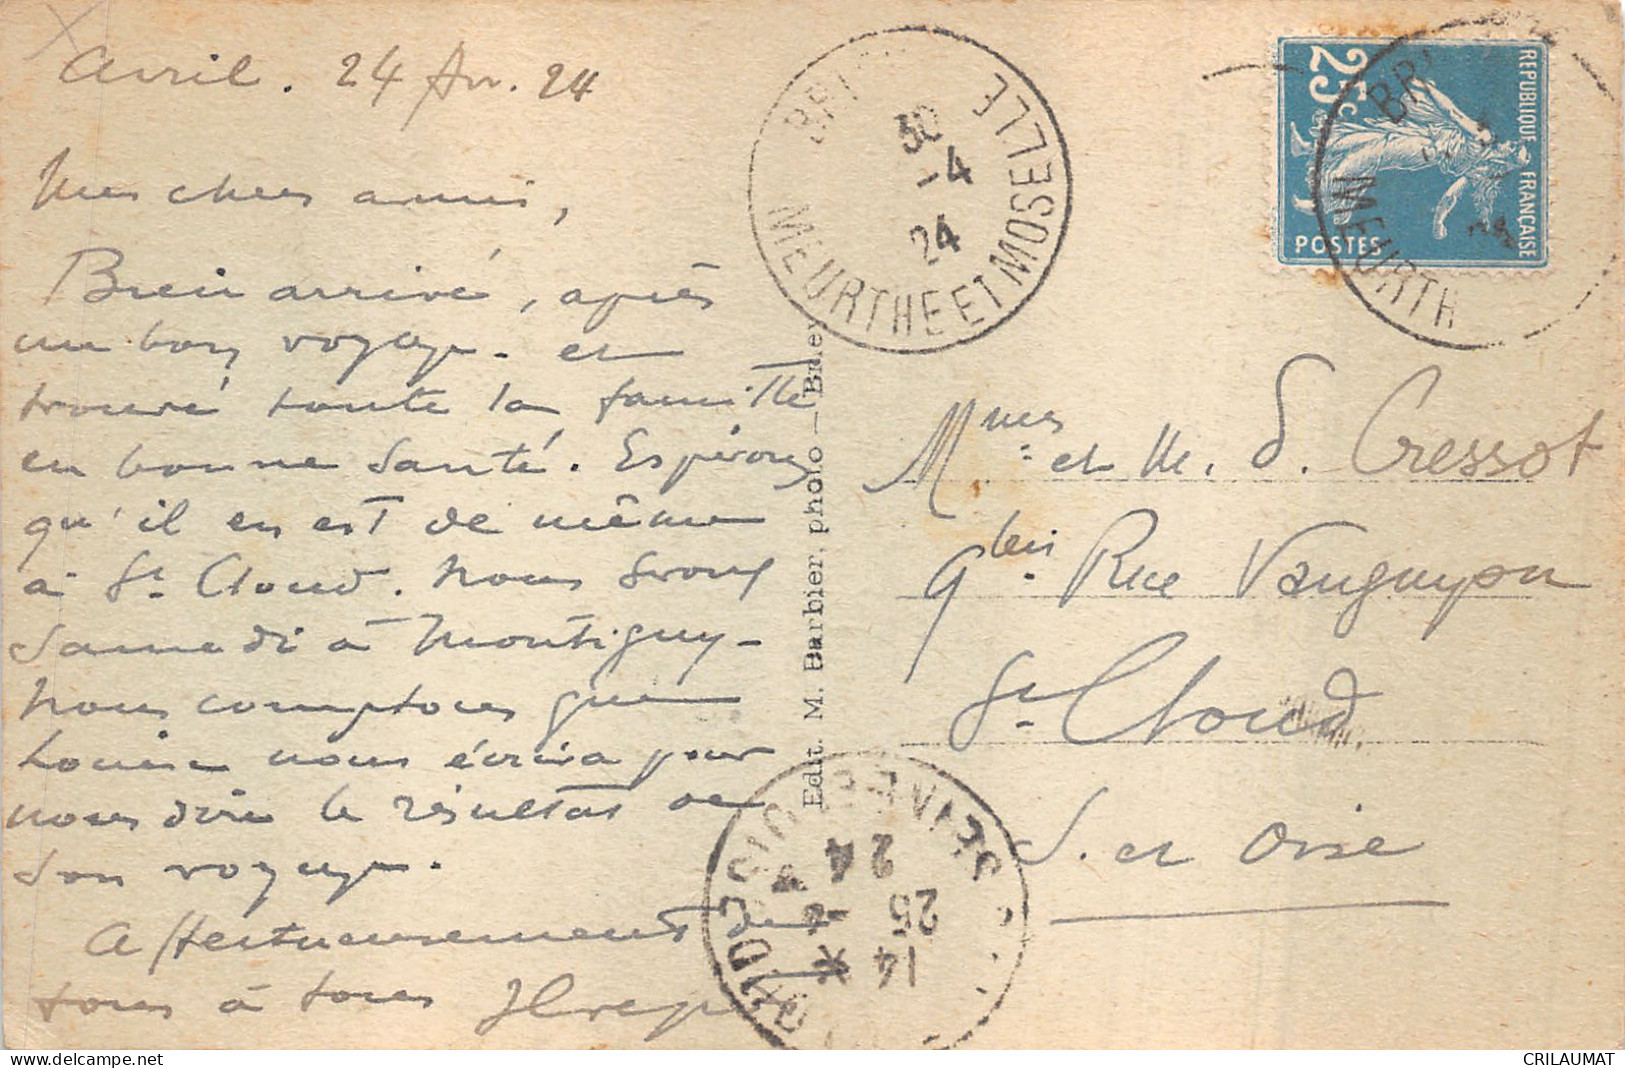 Avril. 24 Avr. 24
Mes chers amis,
Bien arrivé, après
un bon voyage. et
trouvé toute la famille
en bonne santé. Espérons
qu'il en est de même
à St. Cloud. Nous serons
samedi à Montigny -
Nous comptons que
Louise nous écrira pour
nous dire le résultat de
son voyage.
Affectueusement
tous à tous
Edit. M. Barbier, photo — Briey
BRI
MEURTHE ET MOSELLE
30
-4
24
25c
REPUBLIQUE FRANÇAISE
POSTES
BRI
MEURTH
Mmes et M. S. Cressot
9 bis. Rue Vauguyon
St. Cloud
S. et Oise
SEINE
14
25
24
delcampe.net
CRILAUMAT